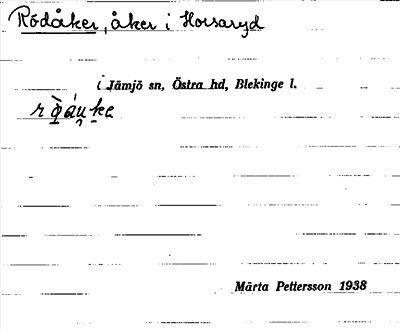 Rödåker, åker i Horsaryd
i Jämjö sn, Östra hd, Blekinge l.
Märta Pettersson 1938